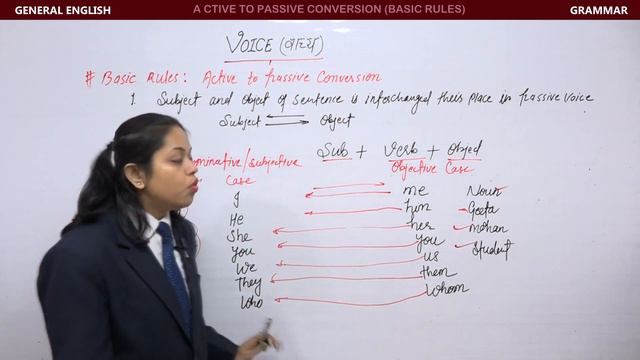 GENERAL ENGLISH
A CTIVE TO PASSIVE CONVERSION (BASIC RULES)
GRAMMAR
VOICE (वाच्य)
# Basic Rules: Active to Passive Conversion
1. Subject and object of sentence is interchanged their place in Passive voice
Subject Object
Sub + Verb + Object
minative/subjective Case
Objective Case
I me Noun
He him Geeta
She her Mohan
You you Student
We us
They them
Who Whom